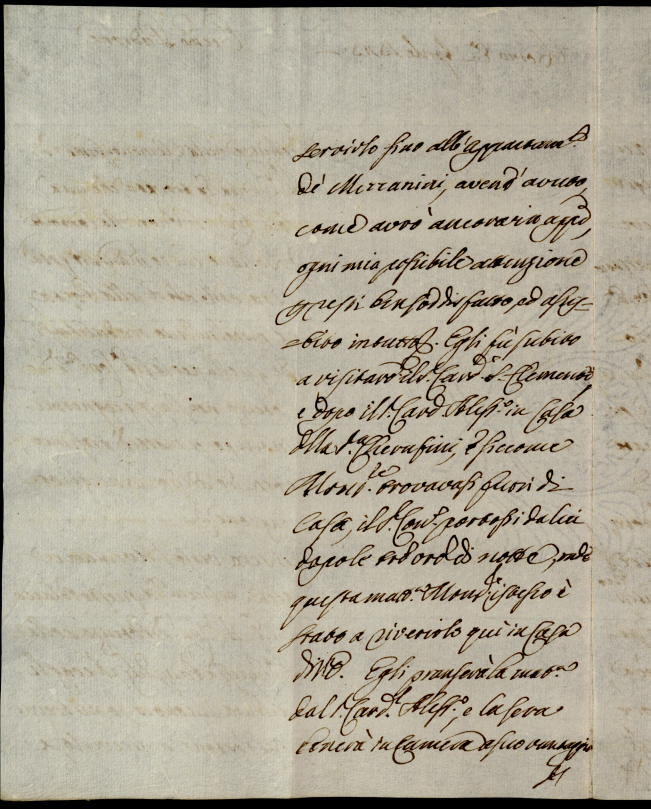 servirlo fino all'appartam.to
de' Mezzanini, avend' avuto,
come avrò ancora in app.o,
ogni mia possibile attenzione
p. resti ben soddisfatto, ed assi-
-stito in tutto. Egli fù subito
a visitare il S. Card. S. Clemente
e dopo il S. Card. Aless.o in Casa
della S.a Cherufini, e siccome
Mons.re trovavasi fuori di
Casa, il S. Con. portossi da lui
dopo le tre ore di notte, onde
questa matt.a Mons. istesso è
stato a riverirlo quì in Casa
di V.E. Egli pranserà la matt.a
dal S. Card.l Aless.o, e la sera
cenerà in Camera a suo vantaggio